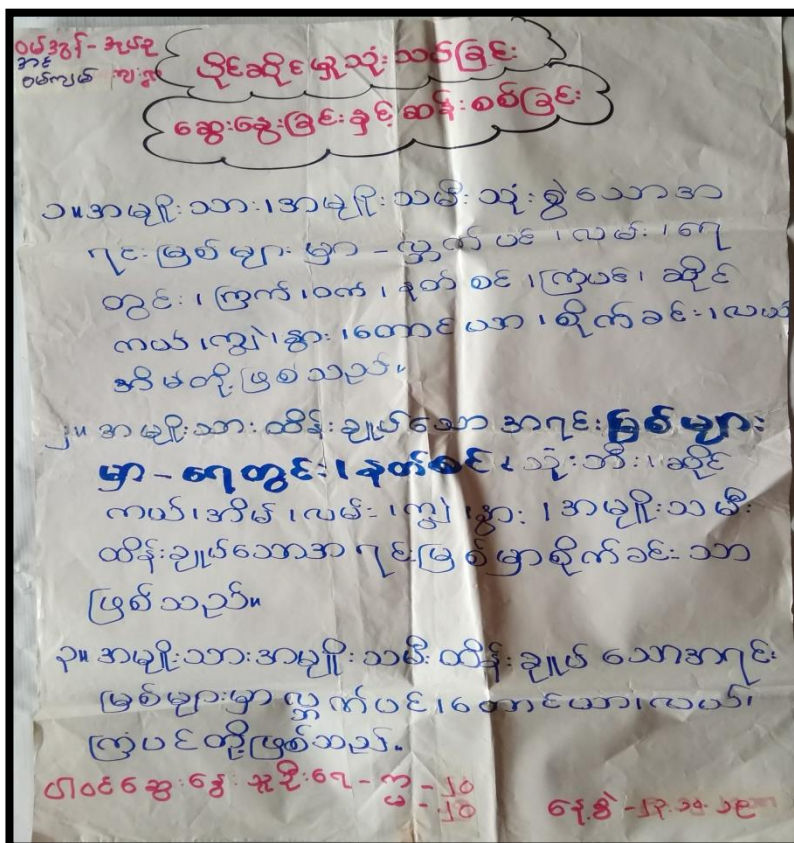 ပိုင်ဆိုင်မှုသုံးသပ်ခြင်း
ဆွေးနွေးခြင်းနှင့်ဆန်းစစ်ခြင်း
၁။အမျိုးသား၊အမျိုးသမီးသုံးစွဲသောအ
ရင်းမြစ်များမှာ-လ္ဘက်ပင်၊လမ်း၊ရေ
တွင်း၊ကြက်၊ဝက်၊နတ်စင်၊ကြံပင်၊ဆိုင်
ကယ်၊ကျွဲ၊နွား၊တောင်ယာ၊စိုက်ခင်း၊လယ်
အိမ်တို့ဖြစ်သည်။
၂။အမျိုးသားထိန်းချုပ်သောအရင်းမြစ်များ
မှာ-ရေတွင်း၊နတ်စင်၊သုံးဘီး၊ဆိုင်
ကယ်၊အိမ်၊လမ်း၊ကျွဲ၊နွား၊အမျိုးသမီး
ထိန်းချုပ်သောအရင်းမြစ်မှာစိုက်ခင်းသာ
ဖြစ်သည်။
၃။အမျိုးသားအမျိုးသမီးထိန်းချုပ်သောအရင်း
မြစ်များမှာလ္ဘက်ပင်၊တောင်ယာ၊လယ်၊
ကြံပင်တို့ဖြစ်သည်။
ပါဝင်ဆွေးနွေးသူဦးရေ-ကျ-၂၀
မ-၂၆
နေ့စွဲ-